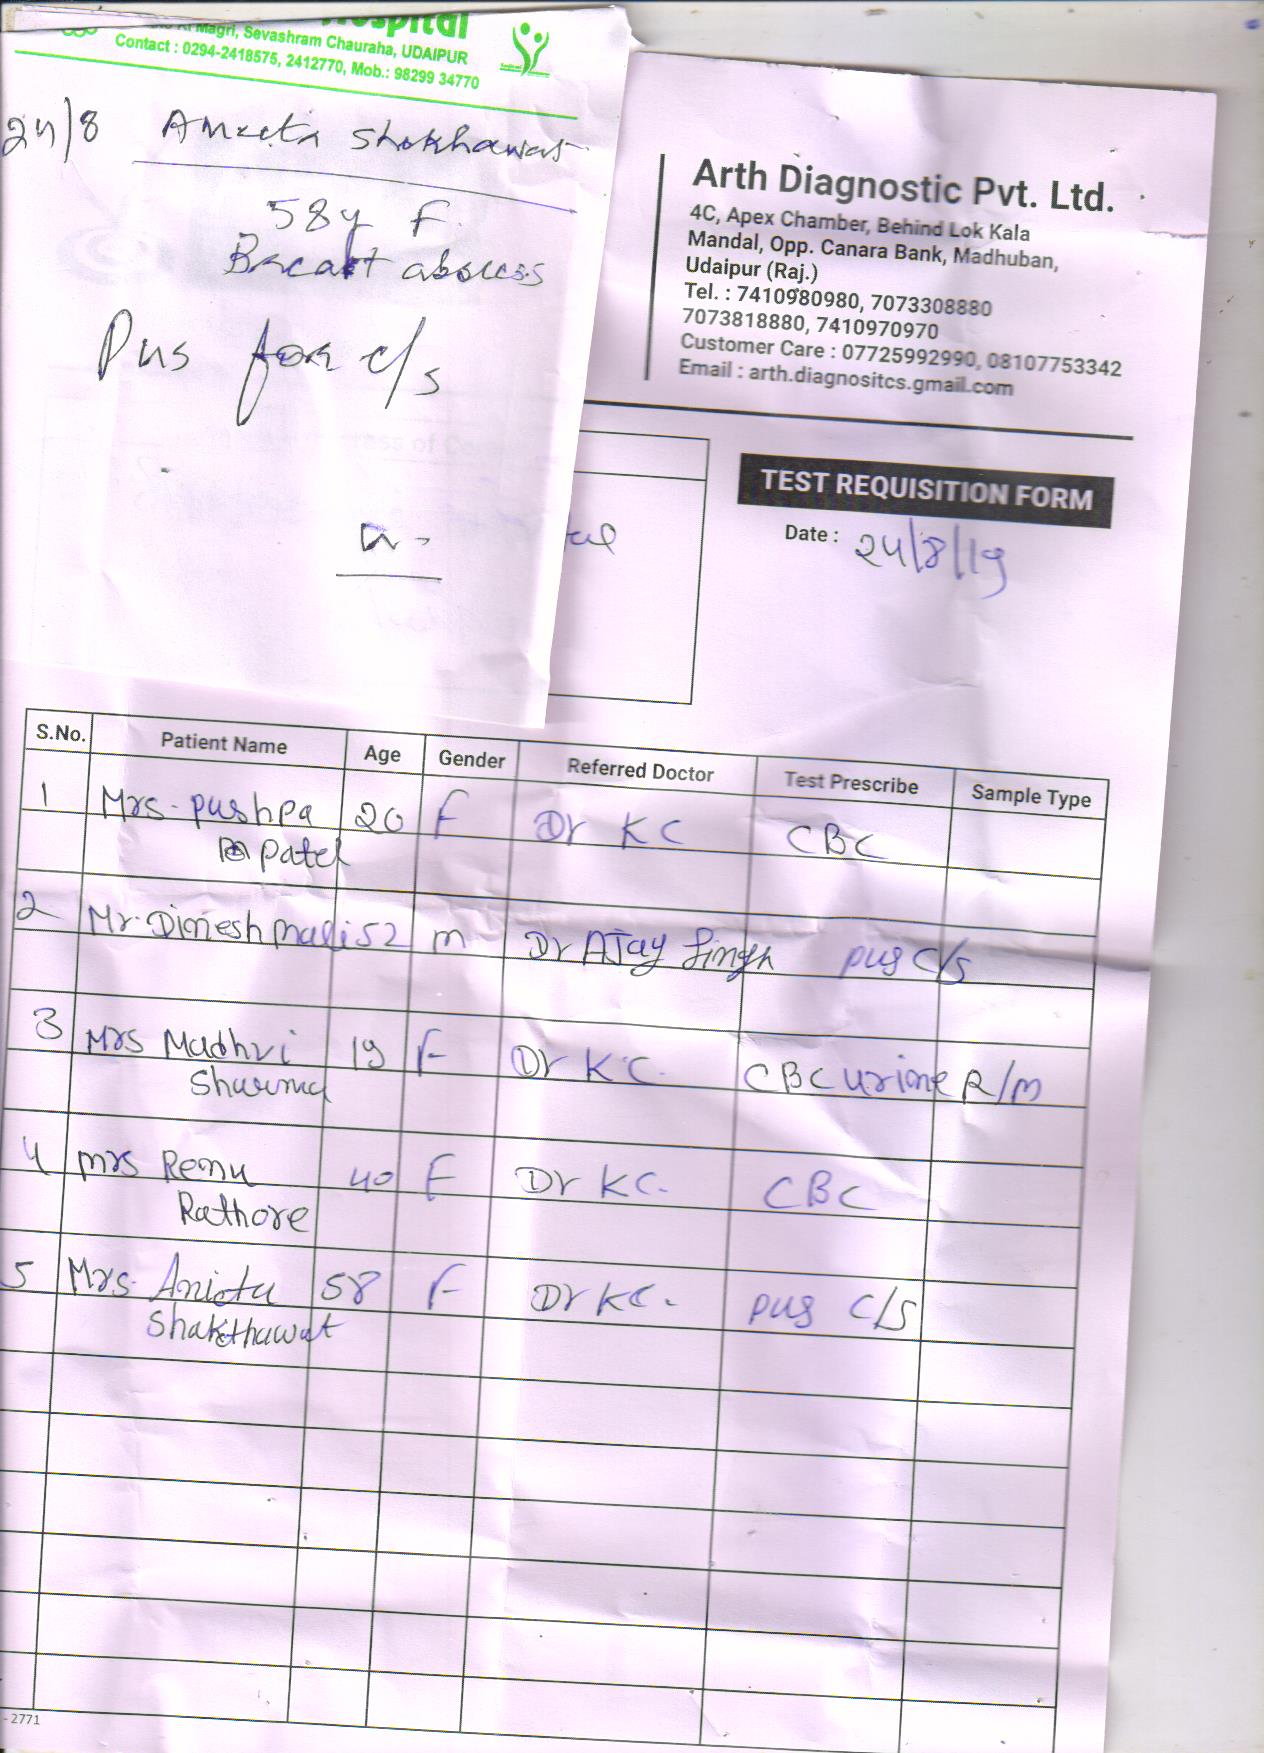 Hospital
Magri, Sevashram Chauraha, UDAIPUR
Contact : 0294-2418575, 2412770, Mob.: 98299 34770
24/8 Aneeta Shekhawat
58y F
Breast abscess
Pus for c/s
Arth Diagnostic Pvt. Ltd.
4C, Apex Chamber, Behind Lok Kala
Mandal, Opp. Canara Bank, Madhuban,
Udaipur (Raj.)
Tel. : 7410980980, 7073308880
7073818880, 7410970970
Customer Care : 07725992990, 08107753342
Email : arth.diagnositcs.gmail.com
TEST REQUISITION FORM
Date : 24/8/19
S.No. Patient Name Age Gender Referred Doctor Test Prescribe Sample Type
1 Mrs. pushpa 20 F Dr KC CBC
patel
2 Mr. Dinesh mali 52 m Dr AJay Singh pus c/s
3 Mrs Madhvi 19 F Dr KC. CBC urine R/m
Sharma
4 mrs Renu 40 F Dr KC. CBC
Rathore
5 Mrs. Anieta 58 F Dr KC. pus C/S
Shakthawat
-2771